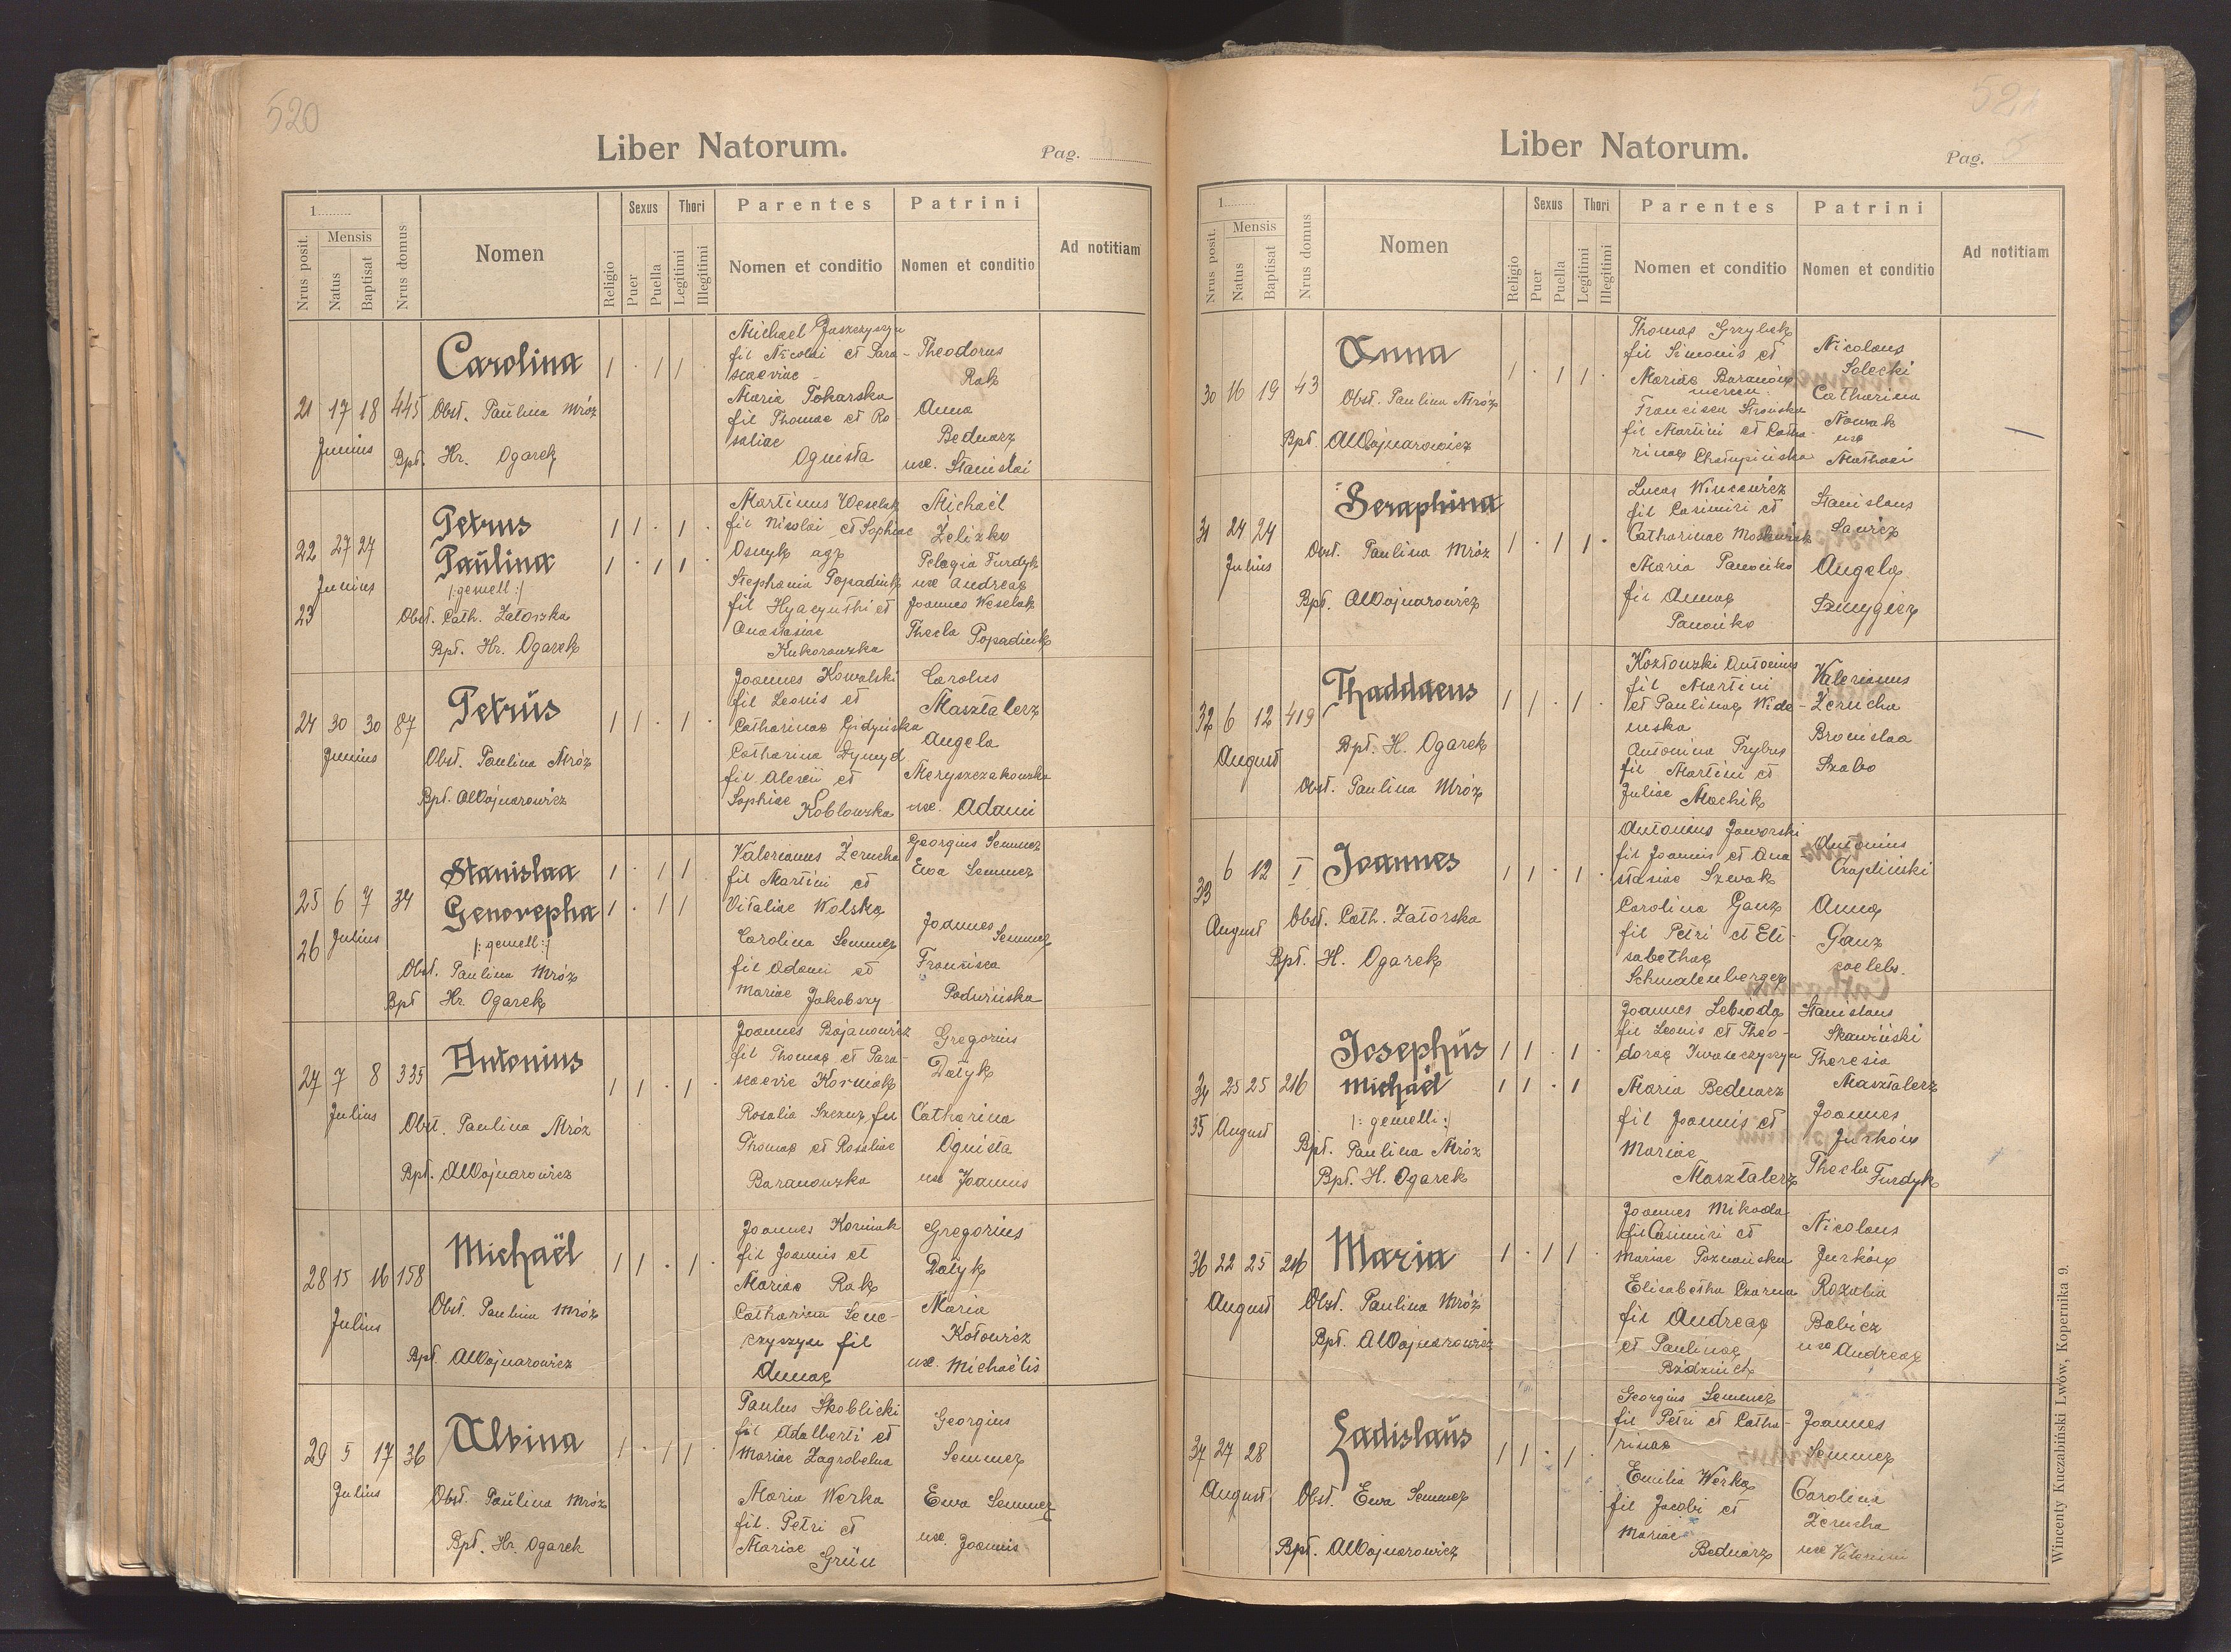 520
Liber Natorum.
Pag.
1
Mensis
Nrus posit.
Natus
Baptisat
Nrus domus
Nomen
Religio
Sexus
Puer
Puella
Thori
Legitimi
Illegitimi
Parentes
Nomen et conditio
Patrini
Nomen et conditio
Ad notitiam
21 17 18 445
Junius
Carolina
Obst. Paulina Mróz
Bpt. Hr. Ogarek
1 · 1 1
Michael Juszczyszyn
fil Nicolai et Para-
scaeviae
Maria Tokarska
fil Thomae et Ro-
saliae
Ognista
Theodorus
Rak
Anna
Bednarz
ux. Stanislai
22 27 27
Junius
23
Petrus
Paulina
/:gemell:/
Obst. Cath. Zatorska
Bpt. Hr. Ogarek
1 1 · 1 ·
1 · 1 1
Martinus Weselak
fil Nicolai et Sophiae
Osnyk agr
Stephania Popadiuk
fil Hyacynthi et
Anastasiae
Kukorowska
Michaël
Żelizko
Pelagia Furdyk
ux Andreae
Joannes Weselak
Thecla Popadiuk
24 30 30 87
Junius
Petrus
Obst. Paulina Mróz
Bpt. AWojnarowicz
1 1 · 1 ·
Joannes Kowalski
fil Leonis et
Catharinae Gidzińska
Catharina Dymyd
fil Alexii et
Sophiae Koblowska
Carolus
Masztalerz
Angela
Meryszczakowska
ux. Adami
25 6 7 34
26 Julius
Stanislaa
Genovepha
/:gemell:/
Obst. Paulina Mróz
Bpt Hr. Ogarek
1 · 1 1
1 · 1 1
Valerianus Żerucha
fil Martini et
Vitaliae Wolska
Carolina Semmer
fil Adami et
Mariae Jakobszy
Georgius Semmer
Ewa Semmer
Joannes Semmer
Francisca
Paduńska
27 7 8 335
Julius
Antonius
Obst. Paulina Mróz
Bpt. AWojnarowicz
1 1 · 1 ·
Joannes Bojanowicz
fil Thomae et Para-
scaevie Korniak
Rosalia Szczur fil
Thomae et Rosaliae
Baranowska
Gregorius
Datyk
Catharina
Ognista
ux Joannis
28 15 16 158
Julius
Michaël
Obst. Paulina Mróz
Bpt. AWojnarowicz
1 1 · 1 ·
Joannes Korniak
fil Joannis et
Mariae Rak
Catharina Senc-
zyszyn fil
Annae
Gregorius
Datyk
Maria
Kotowicz
ux. Michaëlis
29 5 17 36
Julius
Albina
Obst. Paulina Mróz
Bpt. Hr. Ogarek
1 · 1 1
Paulus Skoblicki
fil Adalberti et
Mariae Zagrobelna
Maria Werka
fil. Petri et
Mariae Grün
Georgius
Semmer
Ewa Semmer
ux. Joannis
521
Liber Natorum.
Pag. 5
1
Mensis
Nrus posit.
Natus
Baptisat
Nrus domus
Nomen
Religio
Sexus
Puer
Puella
Thori
Legitimi
Illegitimi
Parentes
Nomen et conditio
Patrini
Nomen et conditio
Ad notitiam
30 16 19 43
Anna
Obst. Paulina Mróz
Bpt. AWojnarowicz
1 · 1 1 ·
Thomas Grzybek
fil Simonis et
Mariae Baranów
mercen.
Francisca Strońska
fil Martini et Catha-
rinae Chałupińska
Nicolaus
Solecki
Catharina
Nowak
ux
Mathaei
31 24 24
Julius
Seraphina
Obst. Paulina Mróz
Bpt. AWojnarowicz
1 · 1 1 ·
Lucas Wincewicz
fil Casimiri et
Catharinae
Maria Panońko
fil Annae
Panońko
Stanislaus
Sawicz
Angela
Szmygiez
32 6 12 419
August
Thaddaeus
Bpt. H. Ogarek
Obst. Paulina Mróz
1 1 · 1 ·
Kozłowski Antonius
fil Martini
et Paulinae Wide-
nska
Antonina Prybus
fil Martini et
Juliae Machik
Valerianus
Żerucha
Bronislaa
Szabo
33 6 12 I
August
Joannes
Obst. Cath. Zatorska
Bpt. H. Ogarek
1 1 · 1 ·
Antonius Jaworski
fil Joannis et Ana-
stasiae Szewak
Carolina Ganz
fil Petri et Eli-
sabethae
Schmalenberger
Antonius
Czapliński
Anna
Ganz
coelebs.
34 25 25 216
35 August
Josephus
Michaël
/: gemelli:/
Bpt. Paulina Mróz
Bpt. H. Ogarek
1 1 · 1 ·
1 1 · 1
Joannes Lebioda
fil Leonis et Theo-
dorae Iwaseczyszyn
Maria Bednarz
fil Joannis et
Mariae
Masztalerz
Stanislaus
Skawiński
Theresia
Masztalerz
Joannes
Jurków
Thecla Furdyk
36 22 25 216
August
Maria
Obst. Paulina Mróz
Bpt. AWojnarowicz
1 · 1 1 ·
Joannes Mikoda
fil Casimiri et
Mariae Poznańska
Elisabetha Czarna
fil Andreae
et Paulinae
Bździuch
Nicolaus
Jurków
Rozalia
Babicz
ux Andreae
37 27 28
August
Ladislaus
Obst. Ewa Semmer
Bpt. AWojnarowicz
1 1 · 1 ·
Georgius Semmer
fil Petri et Catha-
rinae
Emilia Werka
fil Jacobi et
Mariae
Bednarz
Joannes
Semmer
Carolina
Żerucha
ux Valeriani
Wincenty Kuczabiński Lwów, Kopernika 9.